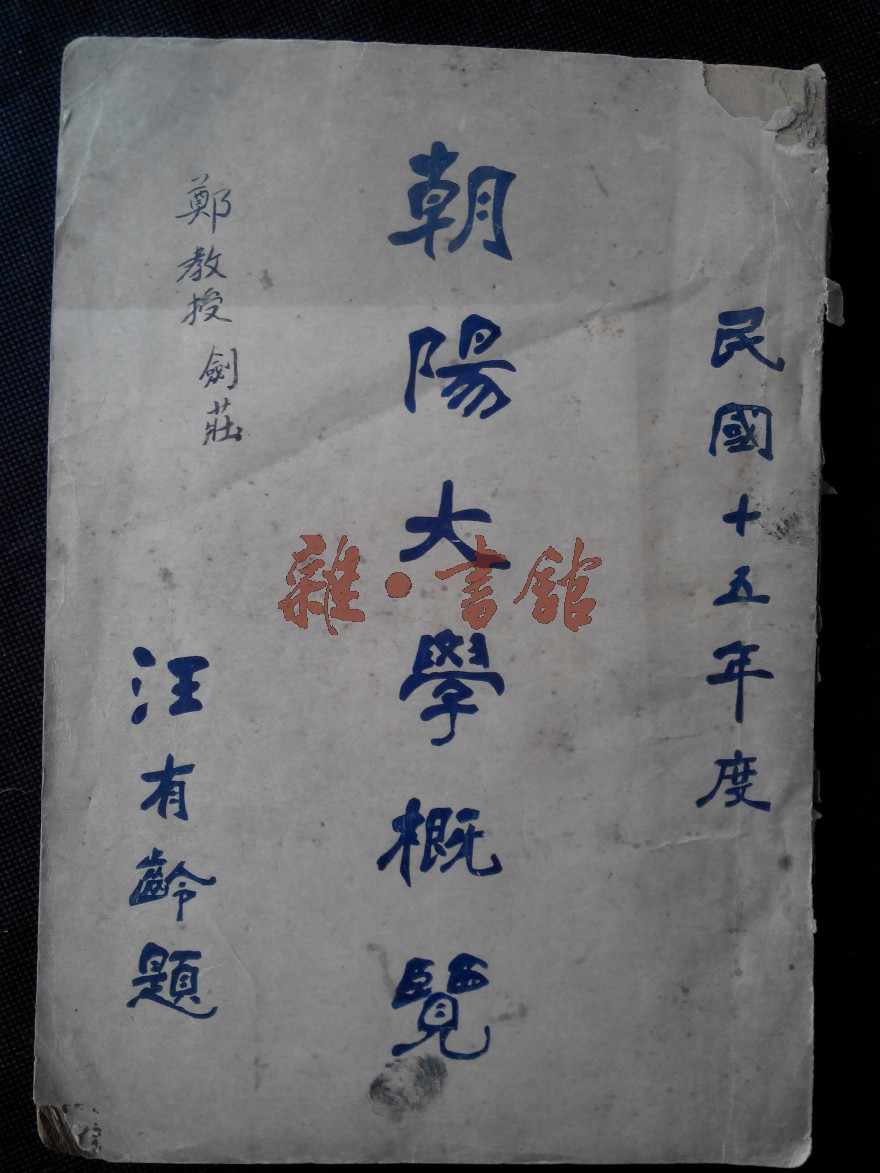 民國十五年度
朝陽大學概覽
鄭教授 劍莊
汪有齡題
雜·書館